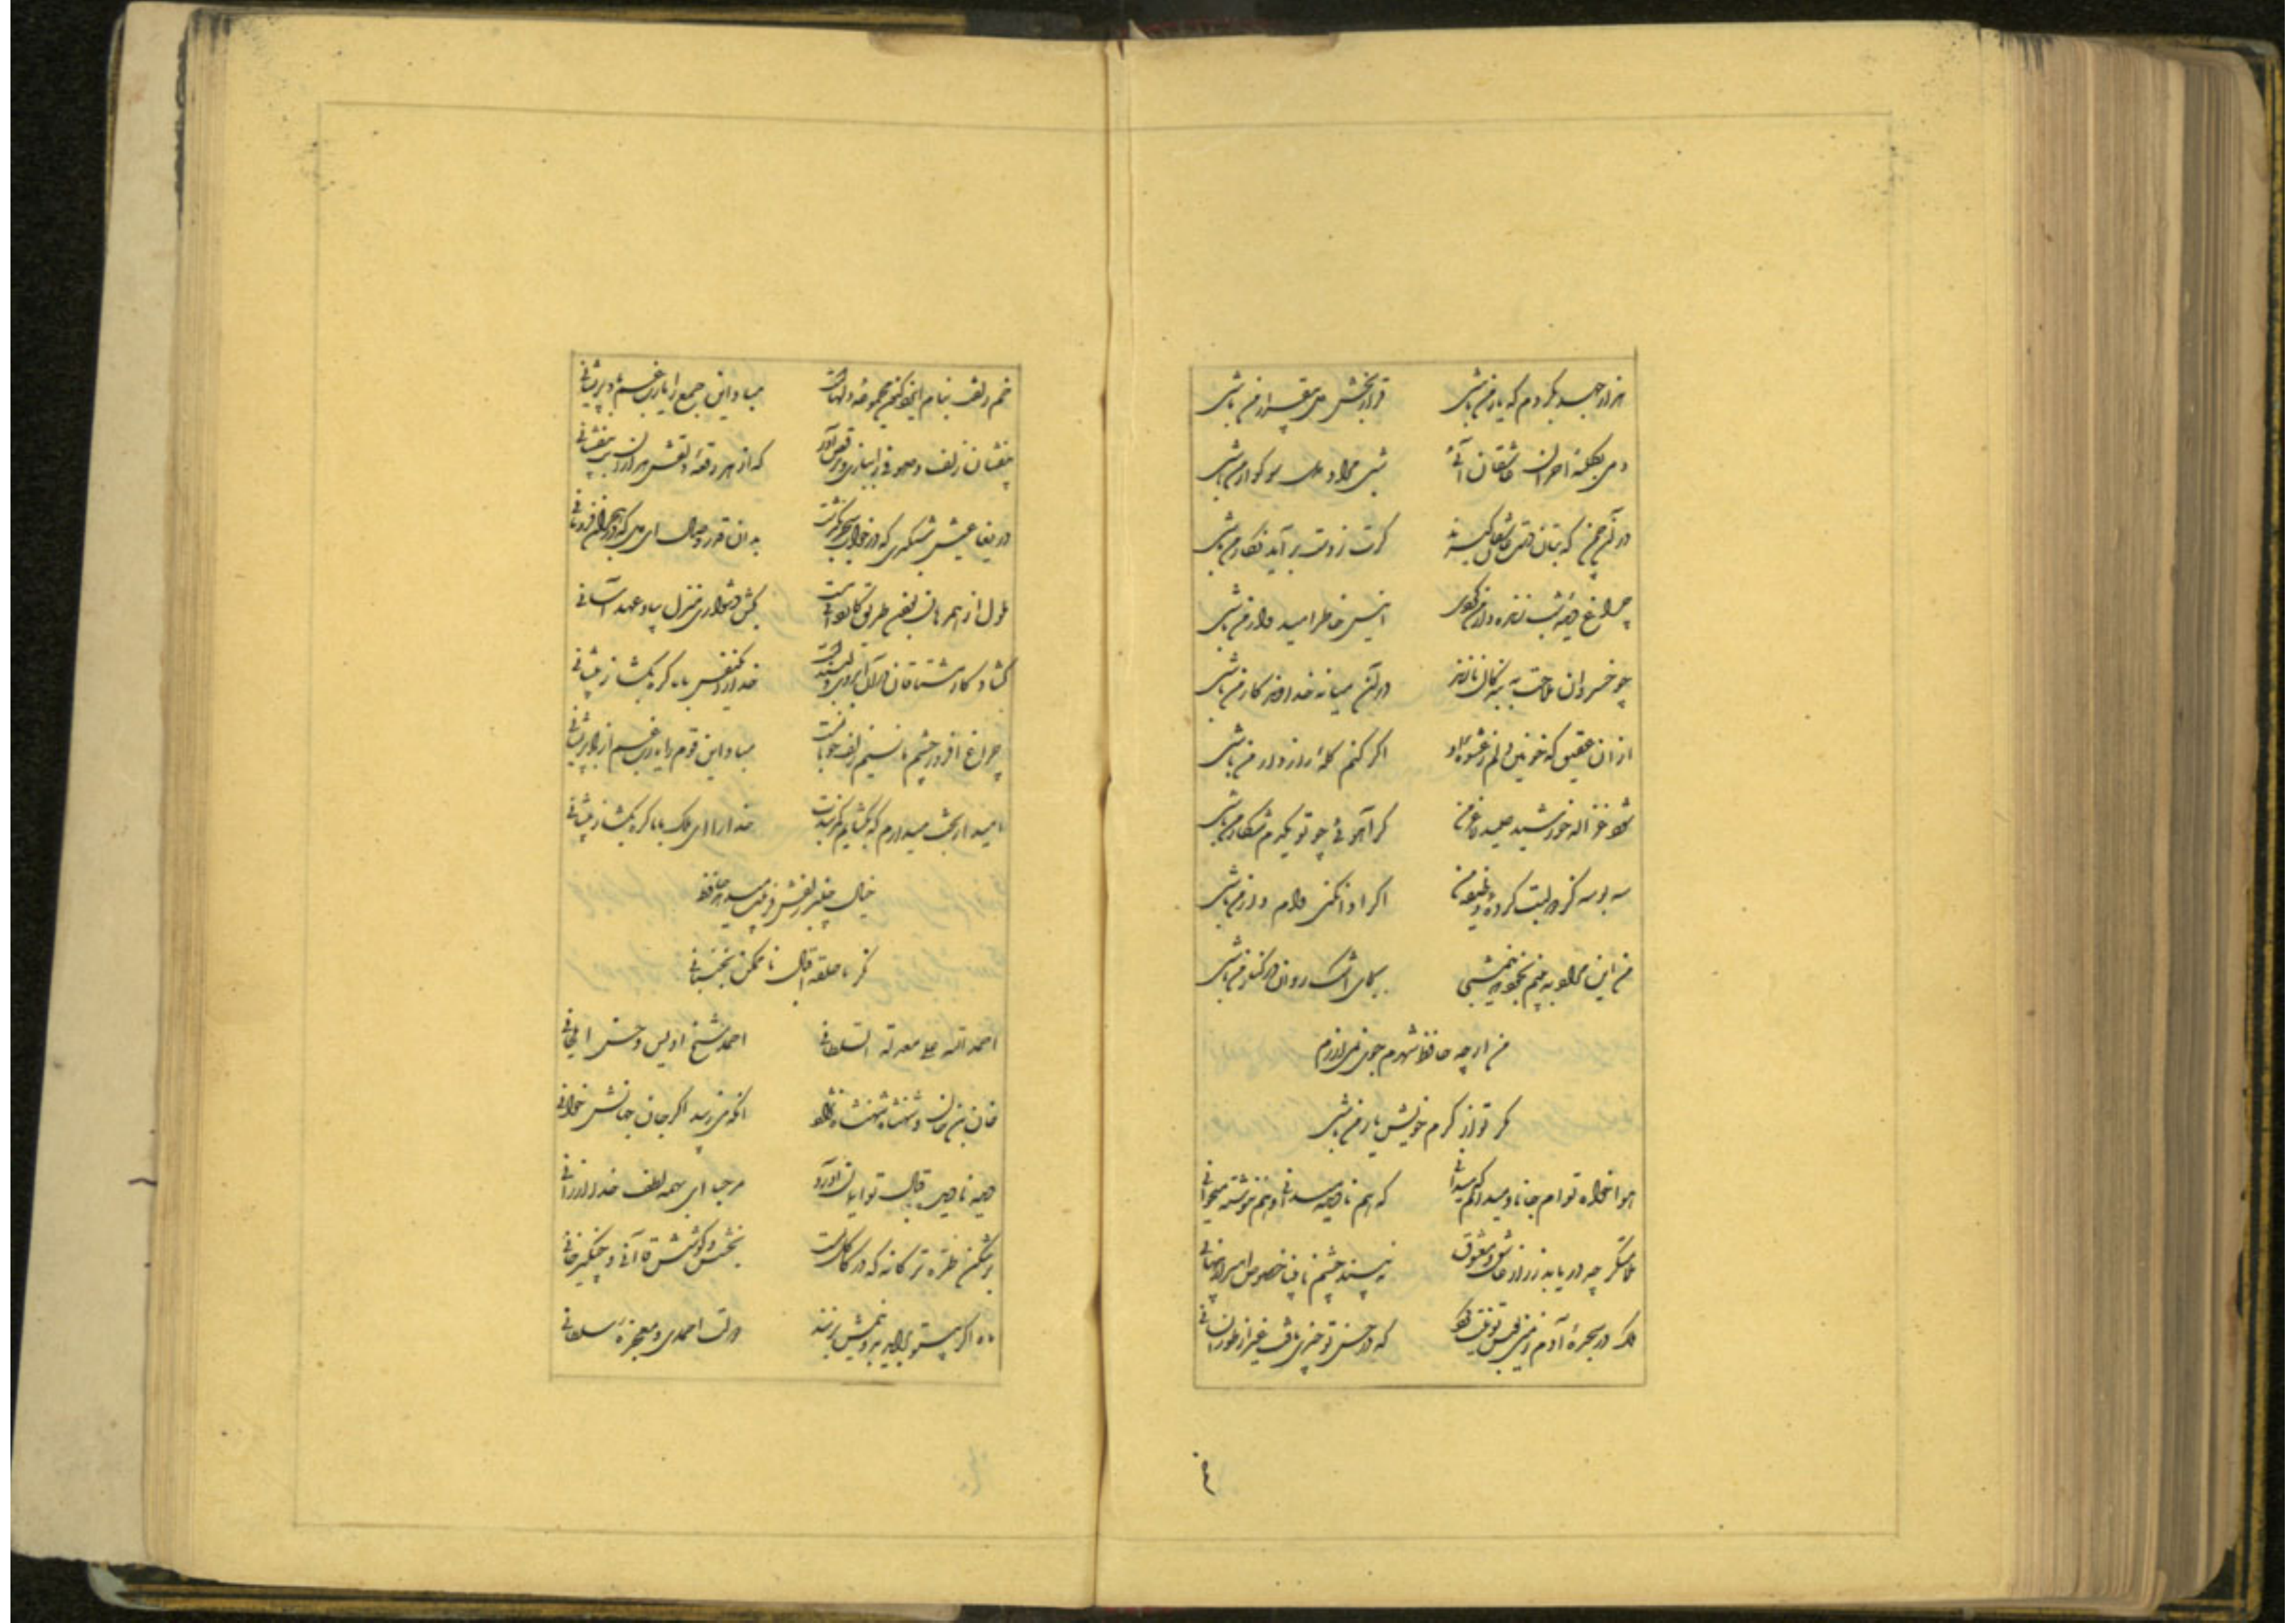 هزار جهد بکردم که یار من باشی قرار بخش دل بیقرار من باشی
دمی بکلبهٔ احزان عاشقان آئی شبی مراد دل سوکوار من باشی
در آن چمن که بتان دست عاشقان کیرند کرت ز دست بر آید نکار من باشی
چراغ دیدهٔ شب زنده دار من کردی انیس خاطر امیدوار من باشی
چو خسروان ملاحت به بندکان نازند در آن میانه خداوندکار من باشی
از آن عقیق که خونین دلم ز عشوه او اکر کنم کلهٔ رازدار من باشی
شود غزاله خورشید صید لاغر من کر آهوئی چو تو یکدم شکار من باشی
سه بوسه کز دو لبت کردهٔ وظیفه من اکر ادا نکنی وام دار من باشی
من این مراد به بینم بخود که نیمشبی بجای اشک روان در کنار من باشی
من ار چه حافظ شهرم جوی نمی ارزم
مکر تو از کرم خویش یار من باشی
هواخواه توام جانا و میدانم که میدانی که هم نادیده میدانی و هم ننوشته میخوانی
ملامتکر چه دریابد ز راز عاشق و معشوق نه بیند چشم نابینا خصوص اسرار پنهانی
ملک در سجدهٔ آدم زمین بوس تو نیت کرد که در حسن تو چیزی یافت غیر از طور انسانی
خم زلفت بنام ایزد کنون مجموعهٔ دلهاست مباد این جمع را یا رب غم از باد پریشانی
بیفشان زلف و صوفی را ببازی و رقص آور که از هر رقعهٔ دلقش هزاران بت بیفشانی
دریغا عیش شبکیری که در خواب سحر بکذشت بدان قدر وصال ای دل که در هجران فرومانی
ملول از همرهان بودن طریق کاردانی نیست بکش دشواری منزل بیاد عهد آسانی
کشاد کار مشتاقان در آن ابروی دلبندست خدا را یکنفس با ما کره بکشا ز پیشانی
چراغ افروز چشم ما نسیم زلف خوبانست مباد این قوم را یا رب غم از باد پریشانی
امید از بخت میدارم که بکشایم کمربندت خدا را ای ملک با ما کره بکشا ز پیشانی
خیال چنبر زلفش فریبت میدهد حافظ
نکر تا حلقهٔ اقبال ناممکن نجنبانی
احمد الله علی معدلة السلطانی احمد شیخ اویس حسن ایلخانی
خان بن خان و شهنشاه شهنشاه نژاد آنکه میزیبد اکر جان جهانش خوانی
دیده نادیده باقبال تو ایمان آورد مرحبا ای بهمه لطف خدا ارزانی
برشکن طره ترکانه که در کاکل تست بخشش و کوشش قاآنی و چنکیزخانی
ماه اکر بیتو براید بدو نیمش بزنند دولت احمدی و معجزهٔ سلطانی